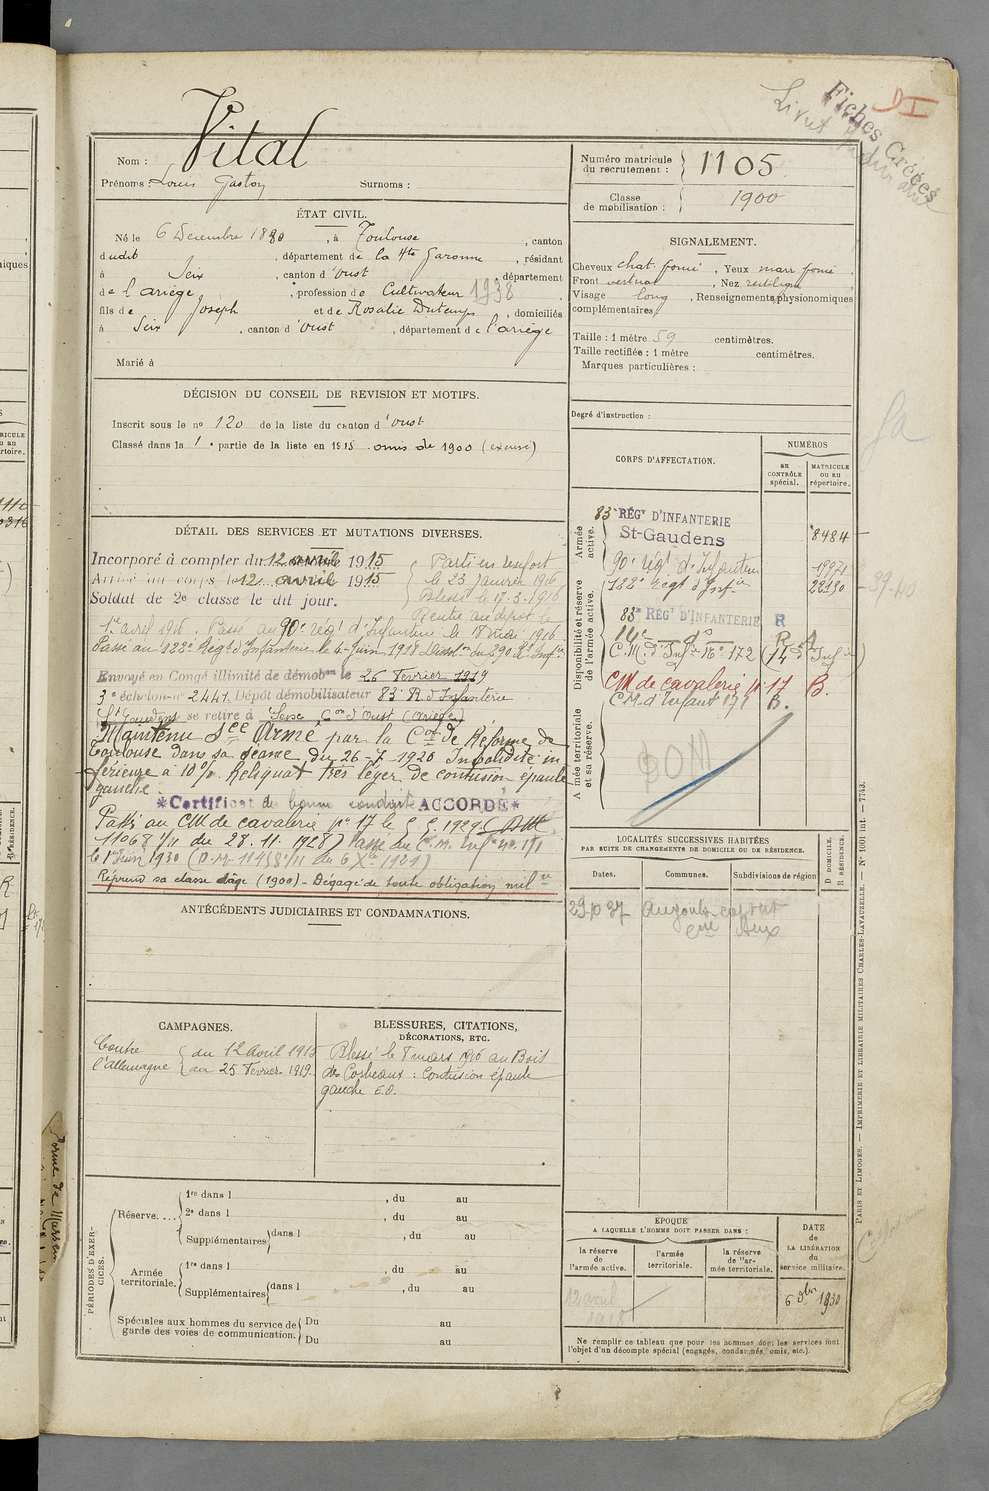 Fiches Créées
Vital
Nom :
Prénoms : Louis Gaston Surnoms :
Numéro matricule du recrutement : 1105
Classe de mobilisation : 1900
ÉTAT CIVIL.
Né le 6 Décembre 1880, à Toulouse, canton
dudit, département de la Hte Garonne, résidant
à Seix, canton d'Oust, département
de l'Ariège, profession de Cultivateur 1938
fils de Joseph et de Rosalie Dutemps, domiciliés
à Seix, canton d'Oust, département de l'Ariège
Marié à
SIGNALEMENT.
Cheveux chat. foncé, Yeux marr foncé,
Front vertical, Nez rectiligne
Visage long, Renseignements physionomiques
complémentaires
Taille : 1 mètre 59 centimètres.
Taille rectifiée : 1 mètre centimètres.
Marques particulières :
Degré d'instruction :
DÉCISION DU CONSEIL DE REVISION ET MOTIFS.
Inscrit sous le no 120 de la liste du canton d'Oust
Classé dans la 1e partie de la liste en 1915 omis de 1900 (excusé)
DÉTAIL DES SERVICES ET MUTATIONS DIVERSES.
Incorporé à compter du 12 avril 1915
Arrivé au corps le 12 avril 1915
Soldat de 2e classe le dit jour.
Parti en renfort
le 23 Janvier 1916
Blessé le 17-3-1916
Rentré au dépôt le
1er avril 1916. Passé au 90e Rég. d'Infanterie le 18 Mai 1916
Passé au 122e Régt d'Infanterie le 4 Juin 1918 Dissolon du 290e Rt Infie
Envoyé en Congé illimité de démobon le 26 Février 1919
3e échelon no 2441. Dépôt démobilisateur 83e R. d'Infanterie
St Gaudens se retire à Seix, Con d'Oust (Ariège)
Maintenu Sce Armé par la Con de Réforme de
Toulouse dans sa séance du 26-7-1920 Invalidité in
férieure à 10% Reliquat très léger de contusion épaule
gauche
*Certificat de bonne conduite ACCORDÉ*
Passé au CM de cavalerie no 17 le
11068 1/11 du 28.11.1928) Passé au C.M. Infie no 171
le 1er Juin 1930
Reprend sa classe d'âge (1900) - Dégagé de toute obligation milre
CORPS D'AFFECTATION.
NUMÉROS
au CONTRÔLE spécial.
MATRICULE ou au répertoire.
Armée active.
83e RÉGT D'INFANTERIE
St-Gaudens
8484
90e Régt d'Infanterie
122e Régt d'Infie
22450
39-40
Disponibilité et réserve de l'armée active.
83e RÉGT D'INFANTERIE R
14e do R A
C.M. d'Infie No 172
CM de cavalerie no 17 B.
C.M. d'Infant 171 B.
Armée territoriale et sa réserve.
DOM
LOCALITÉS SUCCESSIVES HABITÉES
PAR SUITE DE CHANGEMENTS DE DOMICILE OU DE RÉSIDENCE.
Dates.
Communes.
Subdivisions de région
D DOMICILE.
R RÉSIDENCE.
ANTÉCÉDENTS JUDICIAIRES ET CONDAMNATIONS.
CAMPAGNES.
Contre l'Allemagne
du 12 Avril 1915
au 25 Février 1919.
BLESSURES, CITATIONS,
DÉCORATIONS, ETC.
Blessé le 8 mars 1916 au Bois
des Corbeaux : Contusion épaule
gauche E.O.
PÉRIODES D'EXERCICES.
Réserve....
1re dans l , du au
2e dans l , du au
Supplémentaires dans l , du au
Armée territoriale.
1re dans l , du au
Supplémentaires dans l , du au
Spéciales aux hommes du service de garde des voies de communication.
Du au
Du au
ÉPOQUE
A LAQUELLE L'HOMME DOIT PASSER DANS :
la réserve de l'armée active.
l'armée territoriale.
la réserve de l'armée territoriale.
DATE de LA LIBÉRATION du service militaire.
12 avril 1918
6 Xbre 1930
Ne remplir ce tableau que pour les hommes dont les services font
l'objet d'un décompte spécial (engagés, condamnés, omis, etc.).
PARIS ET LIMOGES. — IMPRIMERIE ET LIBRAIRIE MILITAIRES CHARLES-LAVAUZELLE. — No 1001 int. — 7743.